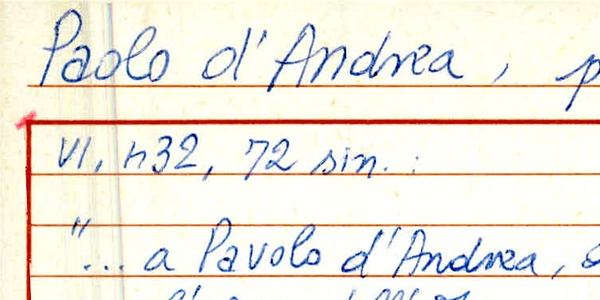 Paolo d'Andrea, p
VI, n32, 72 sin. :
"... a Pavolo d'Andrea,